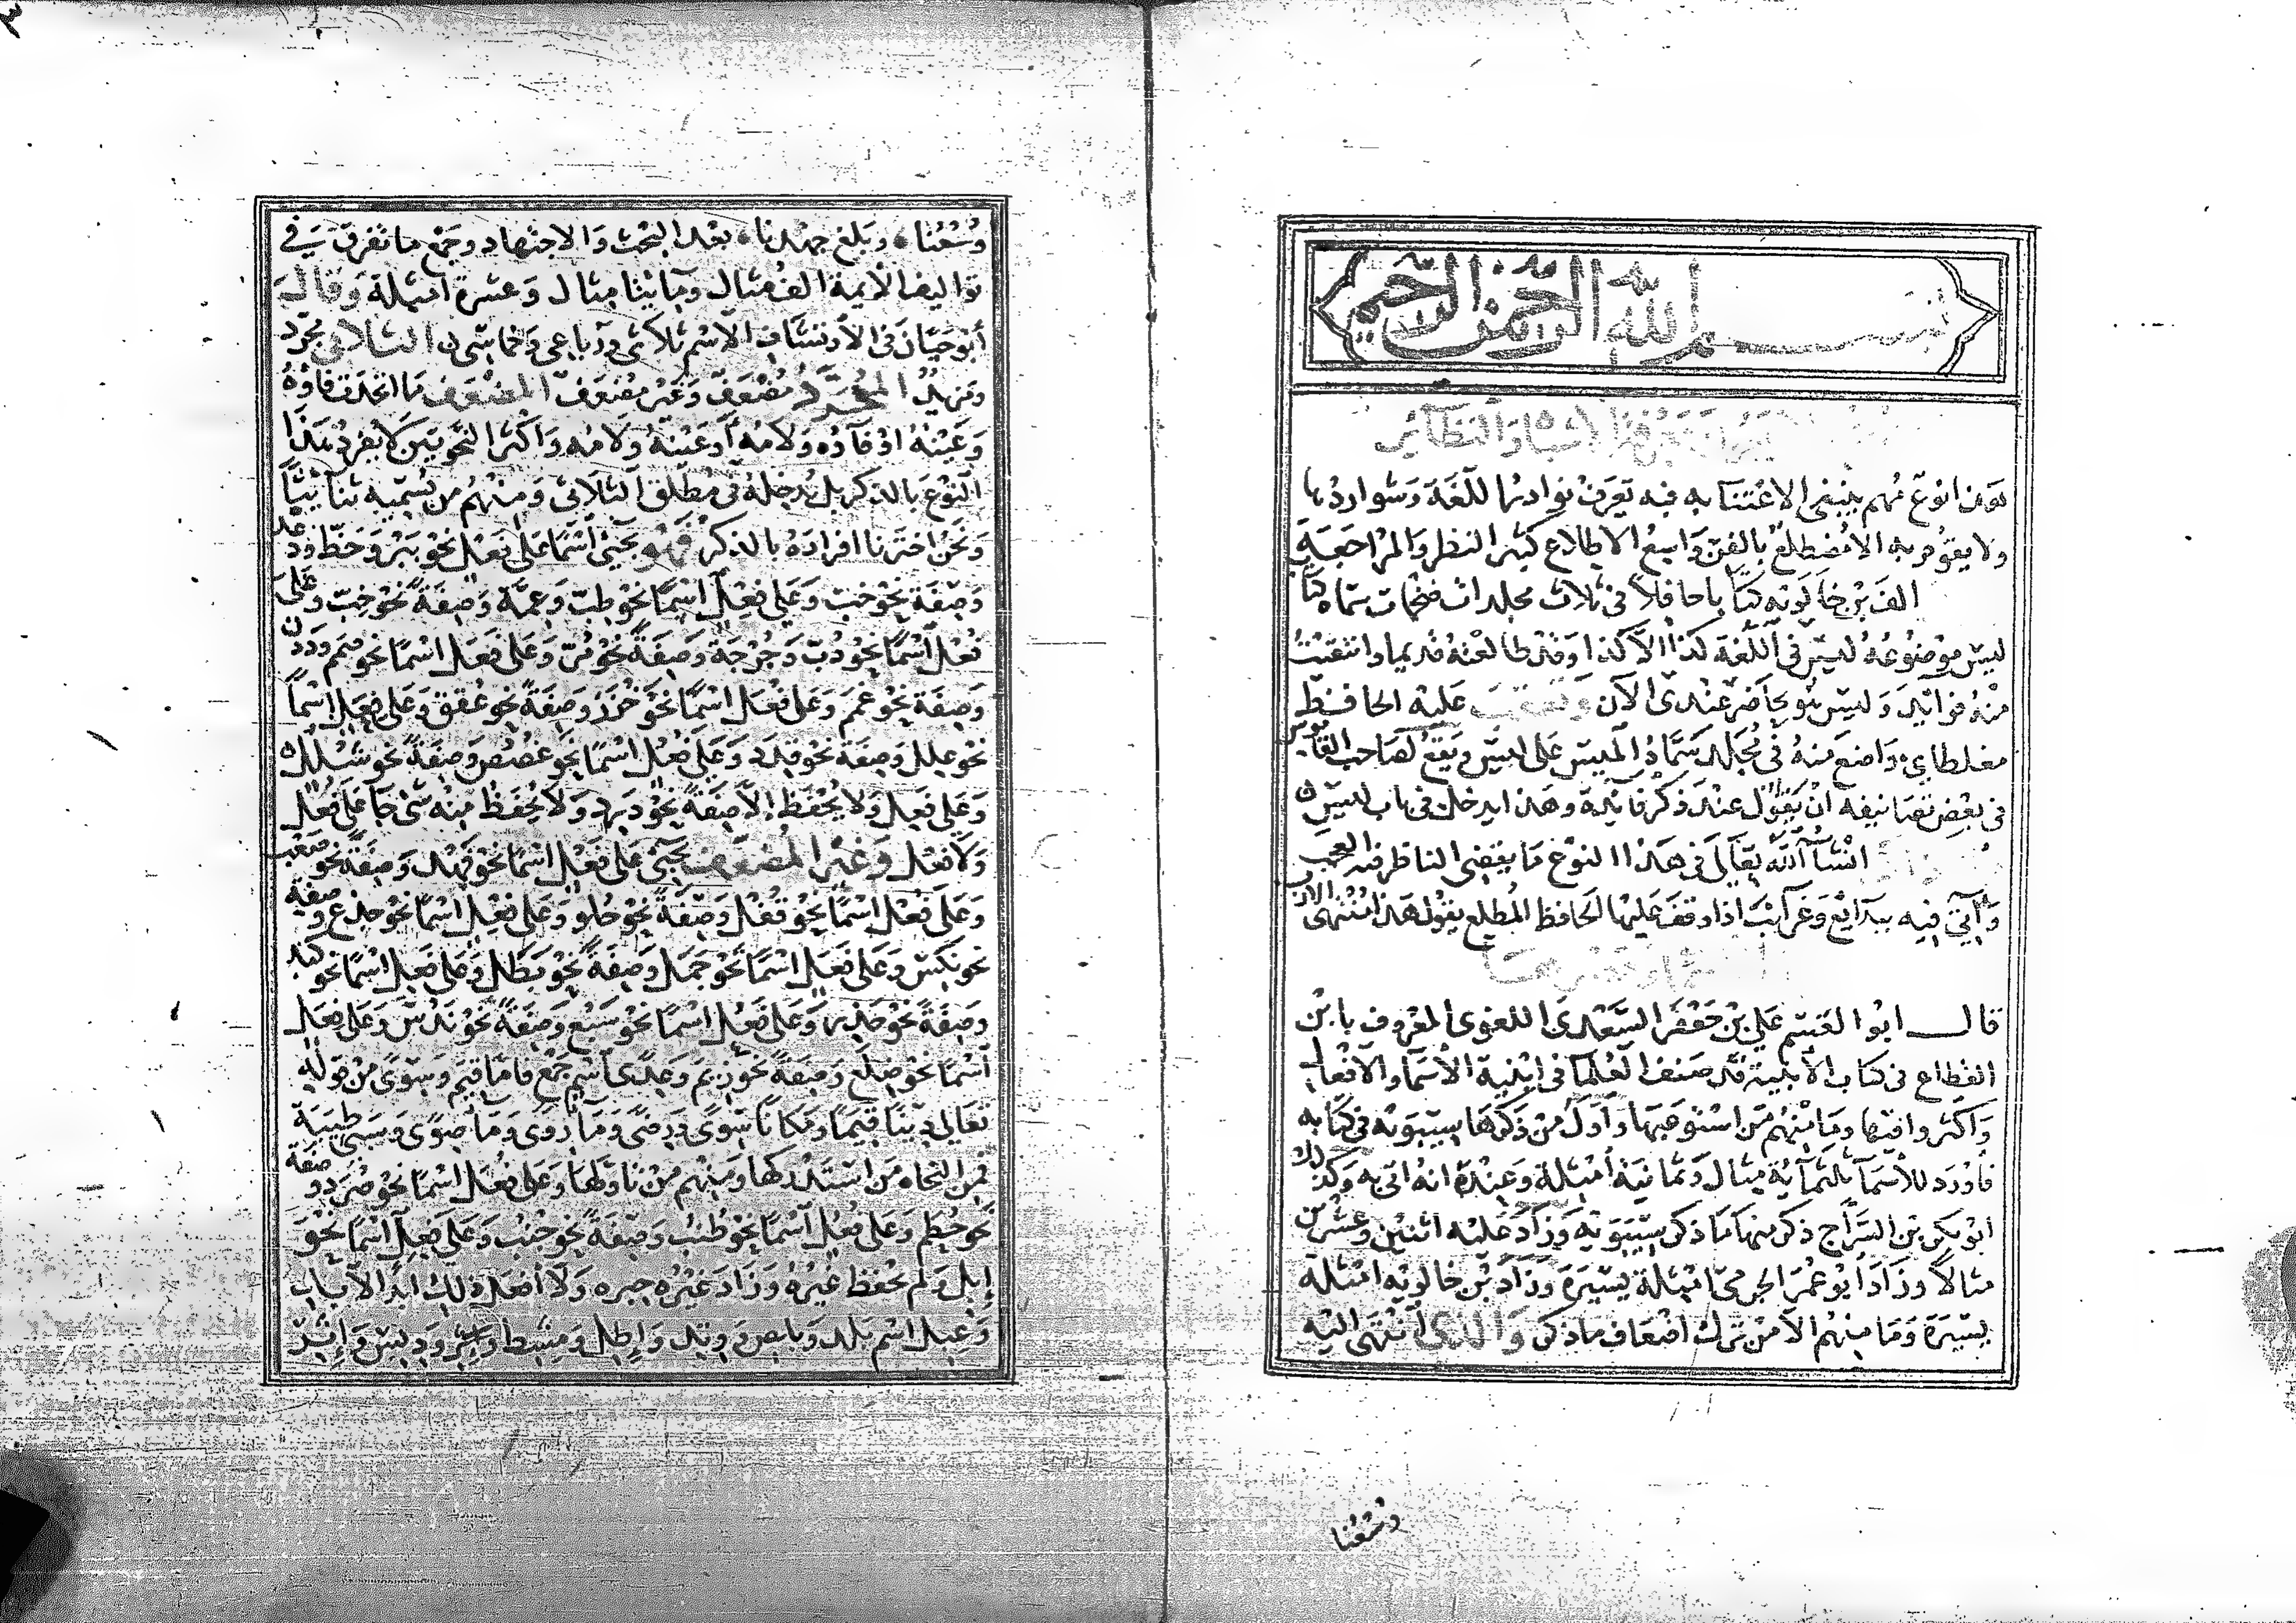 بسم الله الرحمن الرحيم
معرفة الاشباه والنظائر
هذا نوع مهم ينبغى الاعتنا به فبه تعرف نوادر اللغة وشواردها
ولا يقوم به الا مضطلع بالفن واسع الاطلاع كثير النظر والمراجعة
الف بن خالويه كتابا حافلا فى ثلاث مجلدات ضخمات سماه كتاب
ليس موضوعه ليس فى اللغة كذا الا كذا وقد طالعته قديما وانتقيت
منه فوائد وليس هو بحاضر عندى الآن وتعقب عليه الحافظ
مغلطاي مواضع منه فى مجلد سماه الميس على ليس ويقع لصاحب القاموس
فى بعض تصانيفه ان يقول عند ذكر فائدة وهذا يدخل فى باب ليس
انشآ الله تعالى فى هذا النوع ما يقضى الناظر فيه العجب
وآتي فيه ببدايع وغرآئب اذا وقف عليها الحافظ المطلع يقول هذا منتهى الارب
قال ابو القسم علي بن جعفر السعدى اللغوى المعروف بابن
القطاع فى كتاب الأبنية قد صنف العلما فى ابنية الأسماء والافعال
وأكثروا فيها وما منهم من استوعبها وأول من ذكرها سيبويه فى كتابه
فأورد للأسمآ ثلثمآئة مثال وثمانية أمثلة وعنده انه اتى به وكذلك
ابو بكر بن السراج ذكر منها ما ذكر سيبويه وزاد عليه اثنين وعشرين
مثالا وزاد ابو عمر الجرمى امثلة يسيرة وزاد بن خالويه امثلة
يسيرة وما منهم الا من ترك اضعاف ما ذكر والذى انتهى اليه
وسعنا
وسعنا وبلغ جهدنا بعد البحث والاجتهاد وجمع ما تفرق فى
تواليف الأيمة الف مثال ومأيتا مثال وعشرة امثلة وقال
أبو حيان فى الأرتشاف الاسم ثلاثى ورباعى وخماسى الثلاثى مجرد
ومزيد المجرد مضعف وغير مضعف المضعف ما اتحدت فاؤه
وعينه او فاؤه ولامه او عينه ولامه واكثر النحويين لا يفرد هذا
النوع بالذكر بل يدخله فى مطلق الثلاثى ومنهم من يسميه ثنائيا
ونحن اخترنا افراده بالذكر فهو يجئ أسما على فعل نحو ببر وحظ ودعد
وصفة نحو خب وعلى فعل اسما نحو طب وعمة وصفة نحو خب وعلى
فعل أسما نحو دب وجرجة وصفة نحو مر وعلى فعل اسما نحو صمم وددن
وصفة نحو عمم وعلى فعل اسما نحو خزز وصفة نحو عقق وعلى فعل اسما
نحو علل وصفة نحو قدد وعلى فعل اسما نحو عصص وصفة نحو شلل
وعلى فعل ولا يحفظ الا صفة نحو درد ولا يحفظ منه شى جا على فعل
ولا فعل وغير المضعف يجئ على فعل اسما نحو فهد وصفة نحو صعب
وعلى فعل اسما نحو قفل وصفة نحو حلو وعلى فعل اسما نحو جذع وصفة
نحو نكس وعلى فعل اسما نحو جمل وصفة نحو بطل وعلى فعل اسما نحو كبد
وصفة نحو حذر وعلى فعل اسما نحو سبع وصفة نحو ندس وعلى فعل
أسما نحو ضلع وصفة نحو زيم وعدى اسم جمع فاما قيم وسوى من قوله
تعالى دينا قيما ومكانا سوى ورضى وما روى وما صرى وسبى طيبة
فمن النحاة من استدركها ومنهم من تأولها وعلى فعل اسما نحو صرد وصفة
نحو حطم وعلى فعل أسما نحو طنب وصفة نحو جنب وعلى فعل أسما نحو
إبل ولم يحفظ غيره وزاد غيره حبره ولا أفعل ذلك ابد الأبد
وعبل اسم بلد وإطل ومشط ودبس وإثر